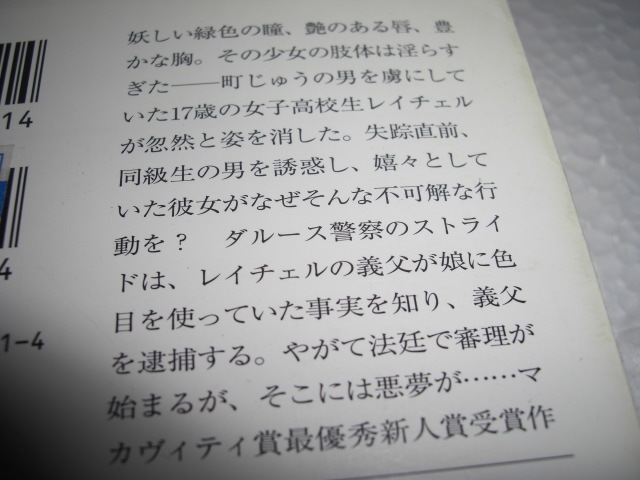 妖しい緑色の瞳、艶のある唇、豊
かな胸。その少女の肢体は淫らす
ぎた――町じゅうの男を虜にして
いた17歳の女子高校生レイチェル
が忽然と姿を消した。失踪直前、
同級生の男を誘惑し、嬉々として
いた彼女がなぜそんな不可解な行
動を？　ダルース警察のストライ
ドは、レイチェルの義父が娘に色
目を使っていた事実を知り、義父
を逮捕する。やがて法廷で審理が
始まるが、そこには悪夢が……マ
カヴィティ賞最優秀新人賞受賞作
14
4
1-4